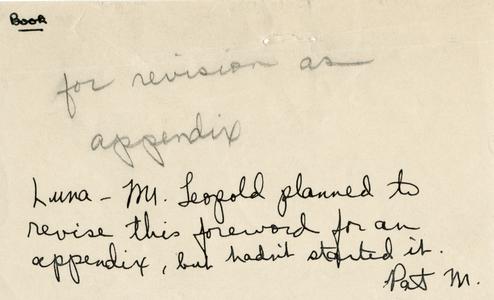 Book
for revision as
appendix
Luna - Mr. Leopold planned to
revise this foreword for an
appendix, but hadn't started it.
Pat M.